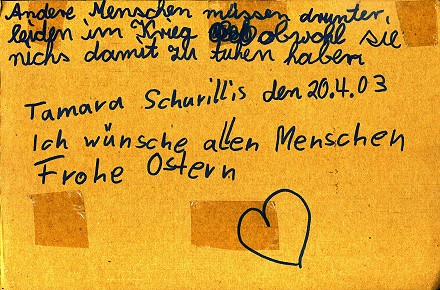 Andere Menschen müssen drunter,
leiden im Krieg obwohl sie
nichs damit zu tuhen haben
Tamara Schurillis den 20.4.03
Ich wünsche allen Menschen
Frohe Ostern